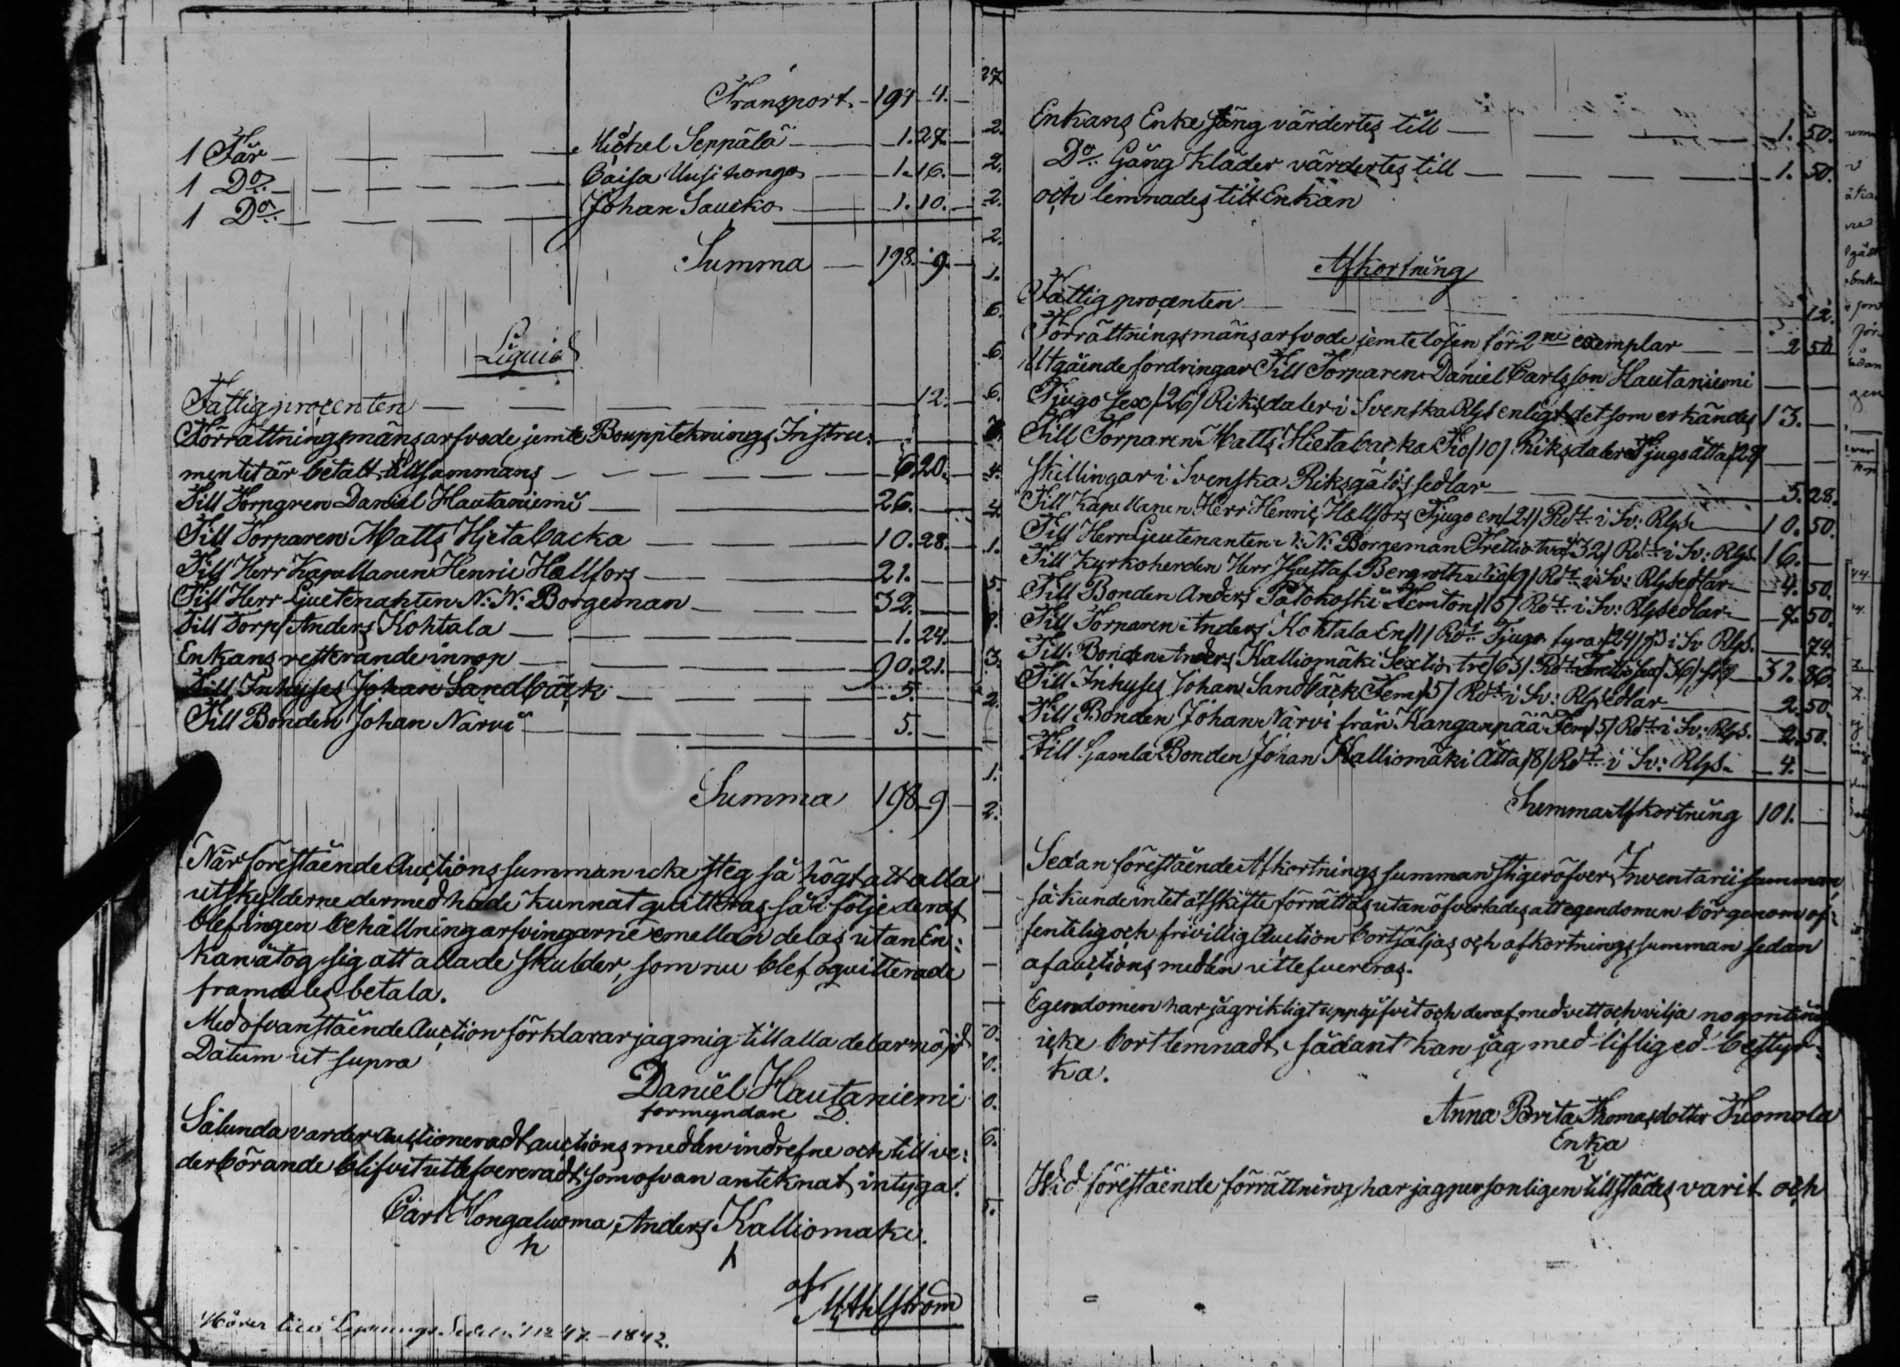 Transport - 194 4.
1 Får Michel Seppälä 1. 27.
1 Do Caisa Uusihonga 1. 16.
1 Do Johan Saucko 1. 10.
Summa 198. 9.
Liquid
Fattigprocenten 12.
Förrättningsmäns arfvode jemte Bouppteknings Instru:
mentet är betalt tillsammans 6 20.
Till Torparen Daniel Hautaniemi 26.
Till Torparen Matts Hietabacka 10. 28.
Till Herr Kapellanen Henric Hallfors 21.
Till Herr Ljeutenanten N: N: Borgeman 32.
Till Torp: Anders Kohtala 1. 24.
Enkans resterande inrop 90. 21.
Till Inhyses Johan Sandbäck 5.
Till Bonden Johan Narvi 5.
Summa 198 9
När förestående Auctions summan icke steg så högt att alla
utskylderne dermed hade kunnat quitteras, så i följe deraf
blef ingen behållning arfvingarne emellan delas utan En:
kan åtog sig att alla de skulder, som nu blef oquitterade
framdeles betala.
Med ofvanstående Auction förklarar jag mig till alla delar nöjd
Datum ut supra
Daniel Hautaniemi
formyndare D.
Sålunda varder auctioneradt, auctions medlen indrefne och till ve:
derbörande blifvit utlefvereradt som ofvan anteknat, intyga.
Carl Kongaluoma, Anders Kalliomäki.
af
M Ahlström
1842.
Enkans Enke säng värdertes till 1. 50.
Do Gång kläder värdertes till 1. 50.
och lemnades till Enkan
Afkortning
Fattigprocenten 12.
Förrättningsmäns arfvode jemte lösen för 2ne exemplar 2 50
Utgående fordringar Till Torparen Daniel Carlsson Hautaniemi
Tjugo sex /26/ Riksdaler i Svenska Rgs enligt det som erkändes 13.
Till Torparen Matts Hietabacka Tio /10/ Riksdaler Tjugo åtta /28/
skillingar i Svenska Riksgälds sedlar 5. 28.
Till Kapellanen Herr Henric Hallfors Tjugo en /21/ Rdr i Sv: Rgs. 10. 50.
Till Herr Ljeutenanten N: N: Borgeman Trettio två /32/ Rdr i Sv: Rgs. 16.
Till Kyrkoherden Herr Gustaf Bergroth Nio /9/ Rdr i Sv: Rgsedlar 4. 50.
Till Bonden Anders Patokoski Femton /15/ Rdr i Sv: Rgsedlar 7. 50.
Till Torparen Anders Kohtala En /1/ Rdr Tjugo fyra /24/ i Sv Rgs. 74.
Till Bonden Anders Kalliomäki Sextio tre /63/ Rdr 31. 86.
Till Inhyses Johan Sandbäck Fem /5/ Rdr i Sv: Rgsedlar 2. 50.
Till Bonden Johan Narvi från Kanganpää Fem /5/ Rdr i Sv: Rgs. 2. 50.
Till Gamla Bonden Johan Kalliomäki Åtta /8/ Rdr i Sv: Rgs. 4.
Summa Afkortning 101.
Sedan förestående Afkortnings summan stiger öfver Inventarii summan,
så kunde intet afskifte förrättas, utan öfverlades att egendomen bör genom of:
fentelig och frivillig Auction bortsäljas och afkortnings summan sedan
af auctions medlen utlefvereras.
Egendomen har jag rikligt uppgifvit och deraf med vett och vilja nogonting
icke bortlemnadt, sådant kan jag med liflig ed bestyr:
ka.
Anna Brita Thomasdotter Kuomola
Enka
Wid förestående förrättning har jag personligen tillstädes varit och